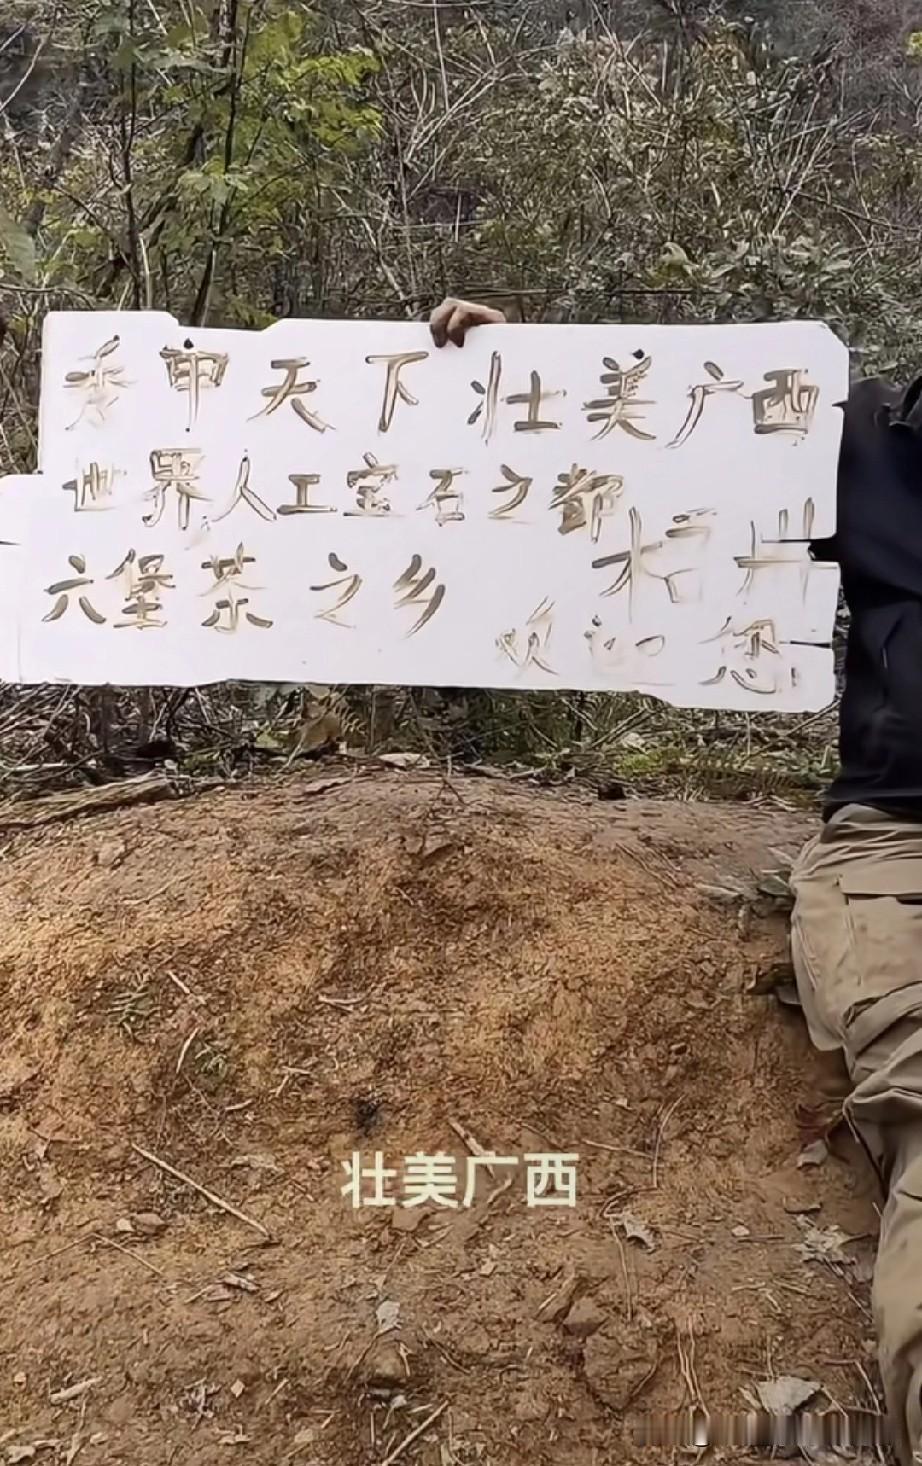 秀甲天下 壮美广西
世界人工宝石之都
六堡茶之乡 梧州
欢迎您
壮美广西